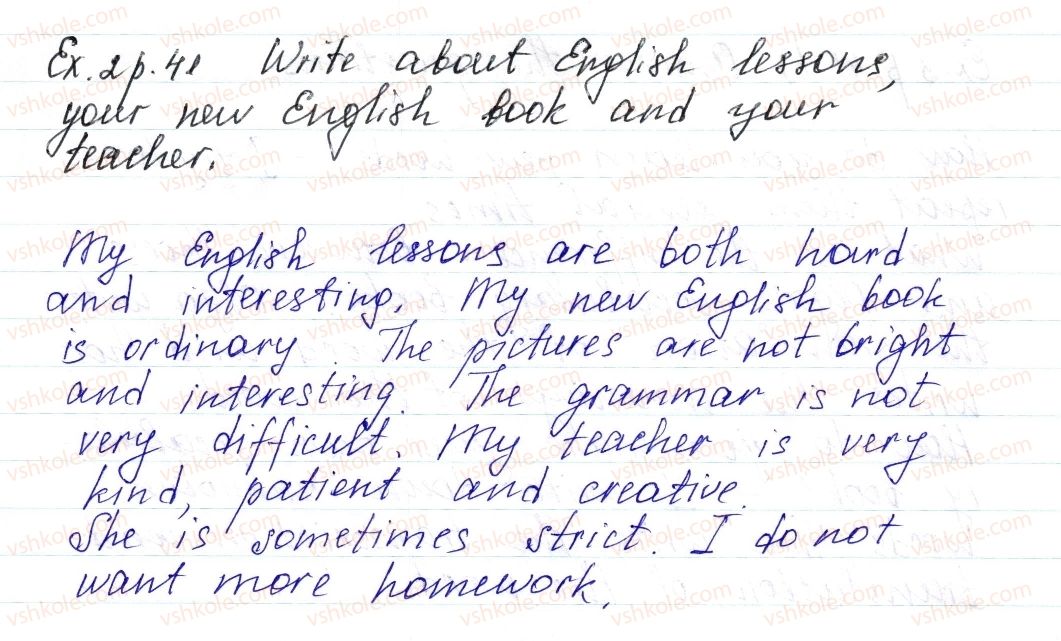 Ex. 2 p. 41 Write about English lessons,
your new English book and your
teacher.
My English lessons are both hard
and interesting. My new English book
is ordinary. The pictures are not bright
and interesting. The grammar is not
very difficult. My teacher is very
kind, patient and creative.
She is sometimes strict. I do not
want more homework.
vshkole.com